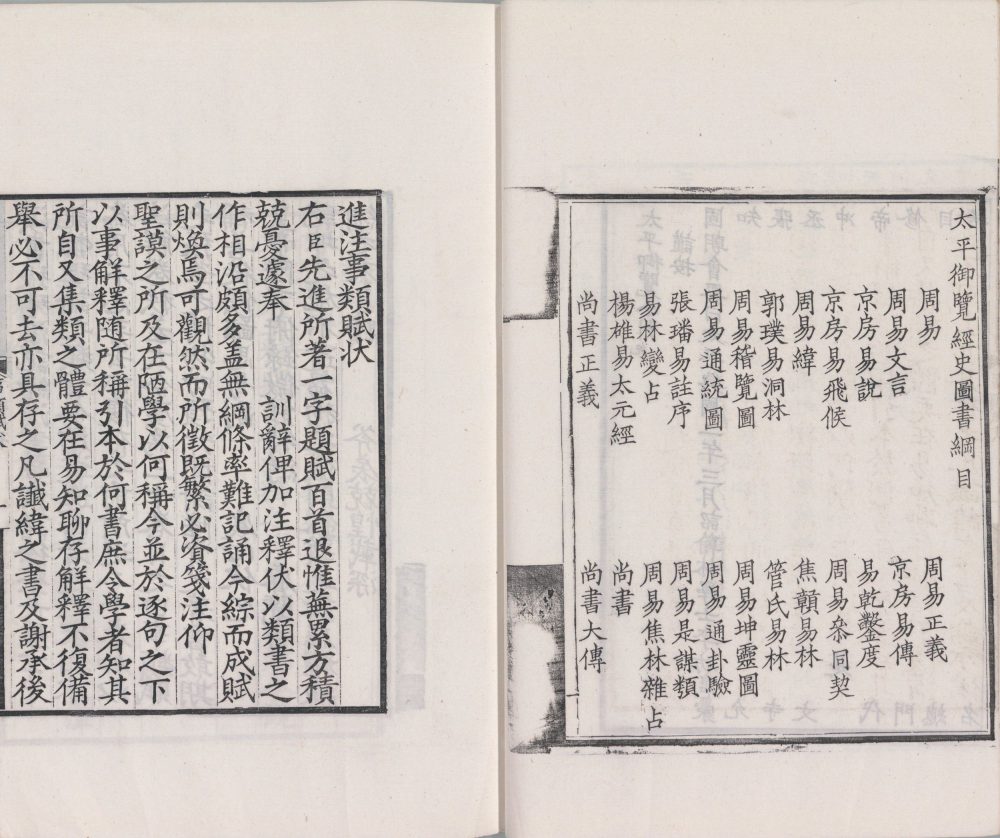 太平御覽經史圖書綱目
周易
周易正義
周易文言
京房易傳
京房易說
易乾鑿度
京房易飛候
周易參同契
周易緯
焦贛易林
郭璞易洞林
管氏易林
周易稽覽圖
周易坤靈圖
周易通統圖
周易通卦驗
張璠易註序
周易是謀類
易林變占
周易焦林雜占
楊雄易太元經
尚書
尚書正義
尚書大傳
進注事類賦狀
右臣先進所著一字題賦百首退惟蕪累方積
兢憂遽奉 訓辭俾加注釋伏以類書之
作相沿頗多盖無綱條率難記誦今綜而成賦
則煥焉可觀然而所徵既繁必資箋注仰
聖謨之所及在陋學以何稱今並於逐句之下
以事解釋隨所稱引本於何書庶令學者知其
所自又集類之體要在易知聊存解釋不復備
舉必不可去亦具存之凡讖緯之書及謝承後